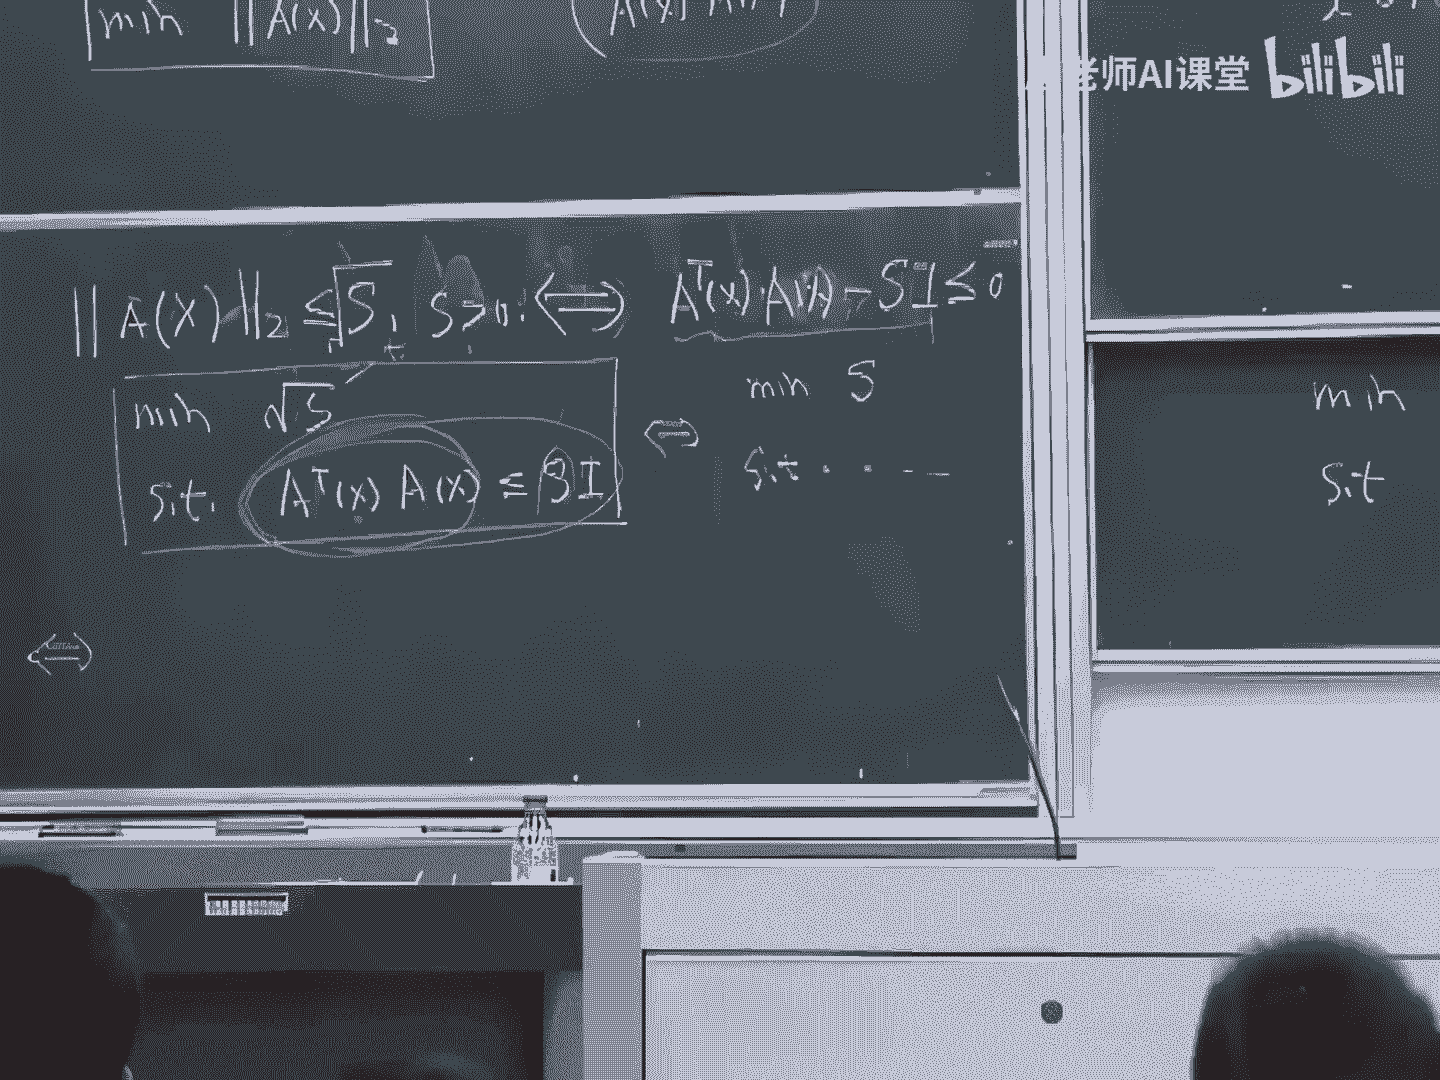 min ||A(x)||₂
老师AI课堂 bilibili
||A(x)||₂ ≤ √S, S>0. ⟺ Aᵀ(x)·A(x) − SI ≤ 0
min √S
s.t. Aᵀ(x) A(x) ≤ SI
⟺
min S
s.t. · · – –
min
s.t
⟺